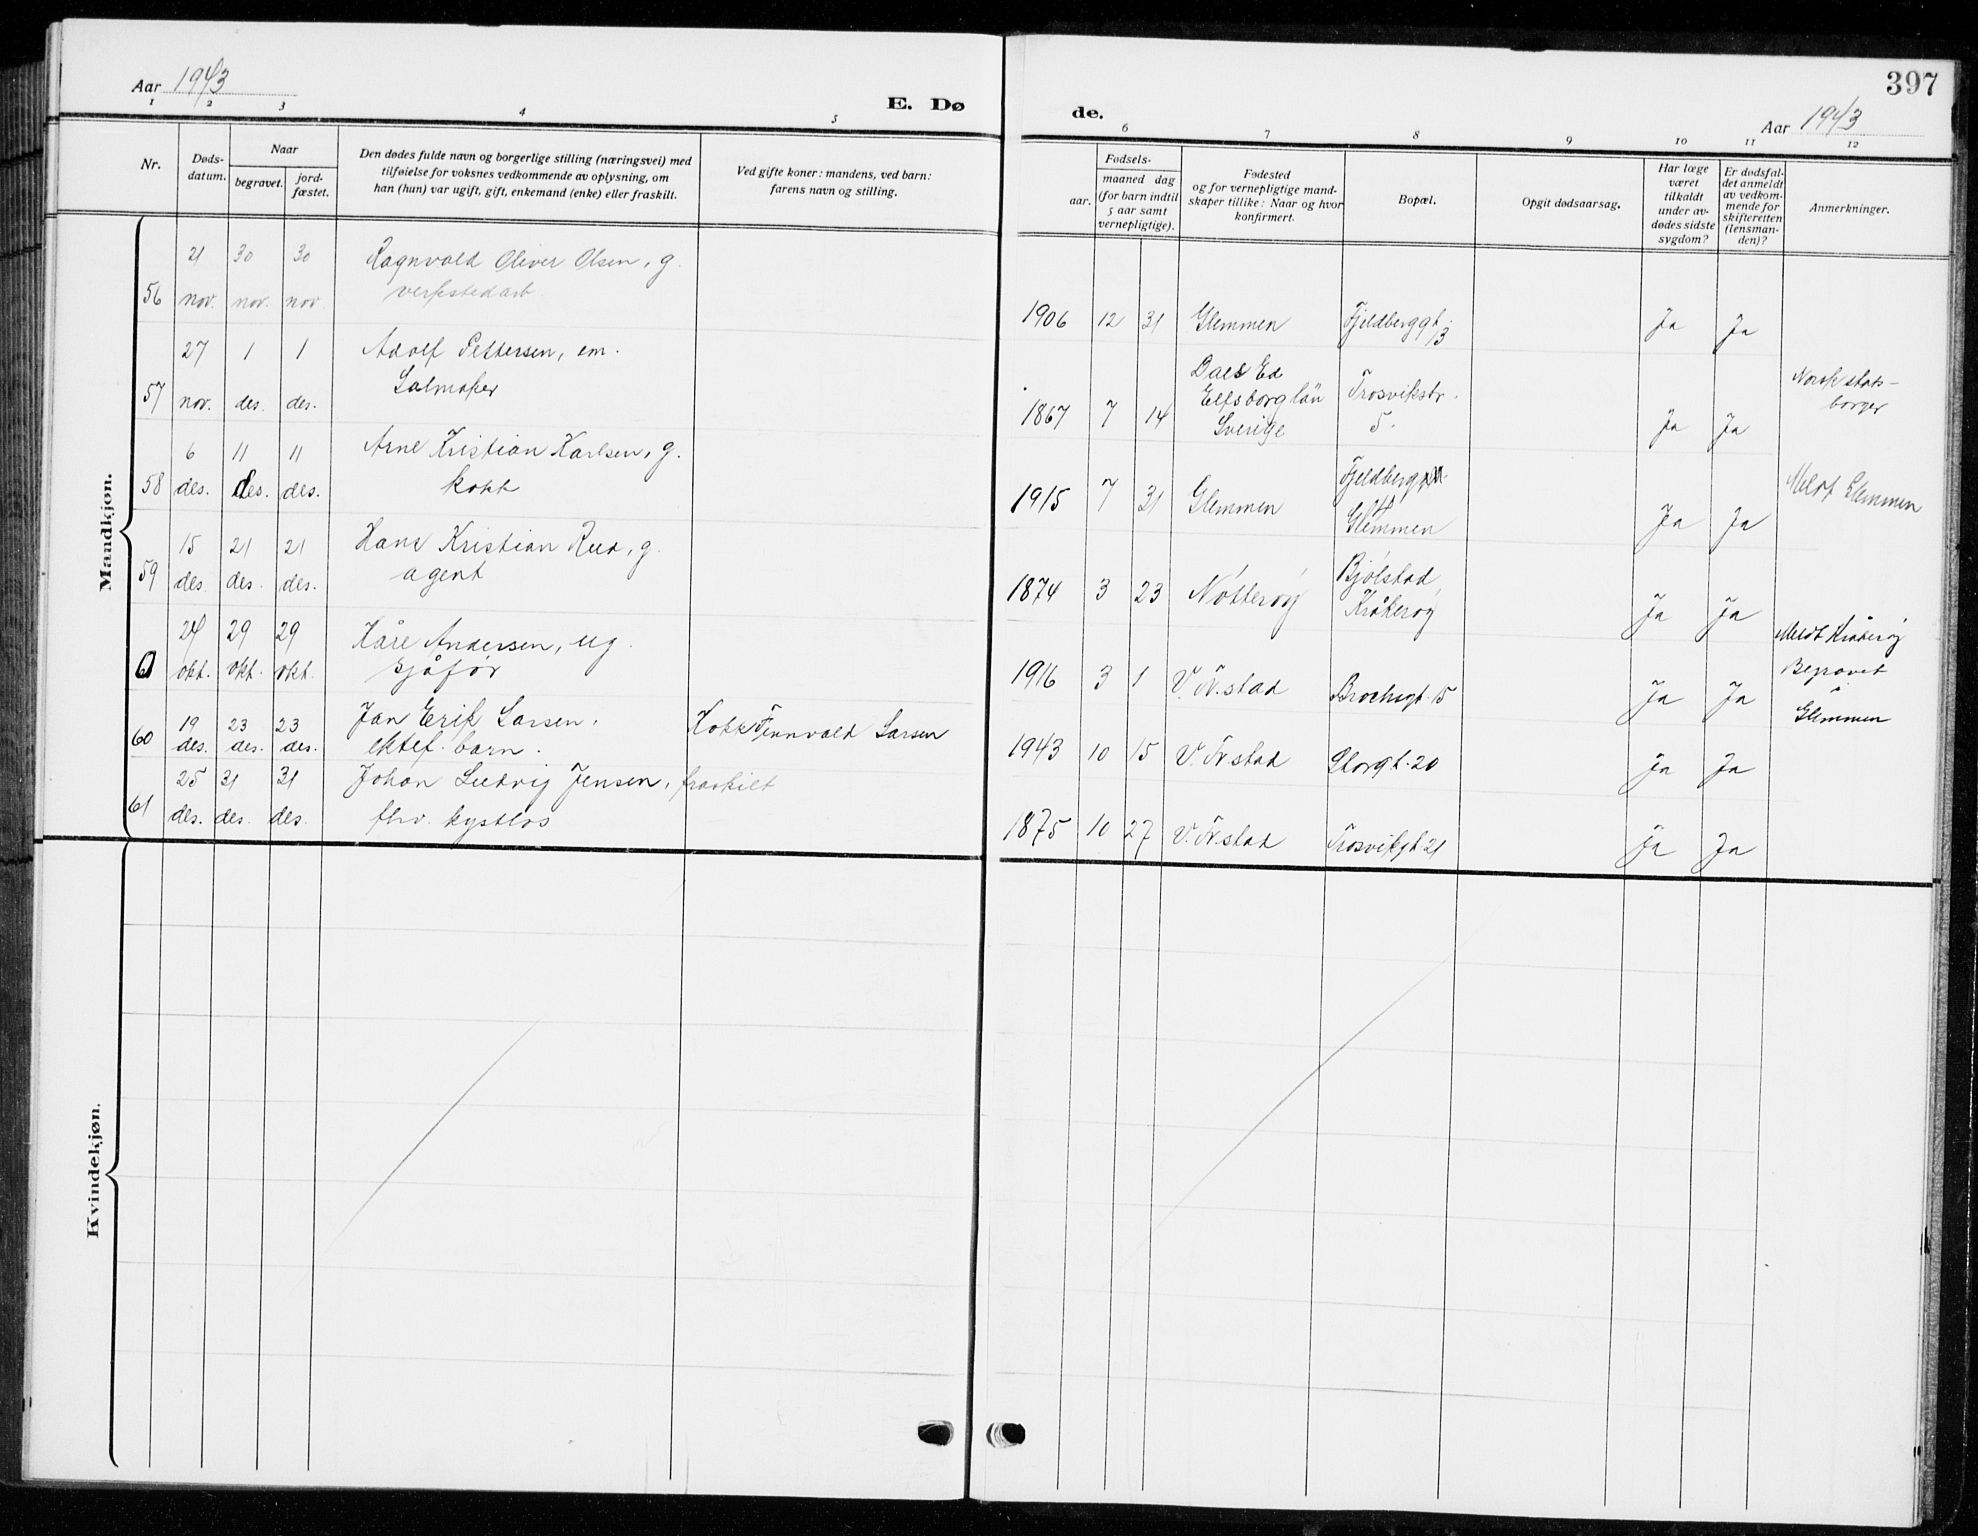 397
Aar 1943
E. Dø
de.
Aar 1943
1 2 3 4 5 6 7 8 9 10 11 12
Nr.
Døds-
datum.
Naar
begravet.
jord-
fæstet.
Den dødes fulde navn og borgerlige stilling (næringsvei) med
tilføielse for voksnes vedkommende av oplysning, om
han (hun) var ugift, gift, enkemand (enke) eller fraskilt.
Ved gifte koner: mandens, ved barn:
farens navn og stilling.
Fødsels-
aar.
maaned dag
(for barn indtil
5 aar samt
vernepligtige).
Fødested
og for vernepligtige mand-
skaper tillike: Naar og hvor
konfirmert.
Bopæl.
Opgit dødsaarsag.
Har læge
været
tilkaldt
under av-
dødes sidste
sygdom?
Er dødsfal-
det anmeldt
av vedkom-
mende for
skifteretten
(lensman-
den)?
Anmerkninger.
Mandkjøn.
21 30 30 Ragnvald Oliver Olsen, g.
56 nov. nov. nov. verkstedarb.
1906 12 31 Glemmen Fjeldberggt. 3 Ja Ja
27 1 1 Adolf Pettersen, em.
57 nov. des. des. Salmaker
Dals Ed
Elfsborg län Trosvikstr.
1867 7 14 Sverige 5. Ja Ja
Norsk stats-
borger
6 11 11 Arne Kristian Karlsen, g.
58 des. des. des. kokk
1915 7 31 Glemmen
Glemmen Ja Ja
Meldt Glemmen
15 21 21 Hans Kristian Rud, g.
59 des des. des. agent
Bjølstad
1874 3 23 Nøtterøy Kråkerøy Ja Ja
Meldt Kråkerøy
24 29 29 Kåre Andersen, ug.
okt. okt. okt. sjåfør
1916 3 1 V. Fr.stad Brochsgt. 15 Ja Ja
Begravet
i
Glemmen
19 23 23 Jan Erik Larsen,
60 des. des. des. ektef. barn. Kokk Finnvald Larsen
1943 10 15 V. Fr.stad Storgt. 20 Ja Ja
25 31 31 Johan Ludvig Jensen, fraskilt
61 des. des. des. fhv. kystlos
1875 10 27 V. Fr.stad Trosvikgt 21 Ja Ja
Kvindekjøn.